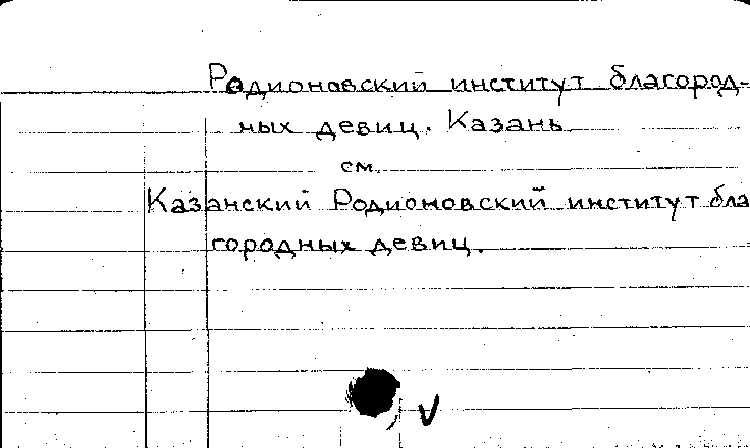 Родионовский институт благород-
ных девиц. Казань
см.
Казанский Родионовский институт бла
городных девиц.
V